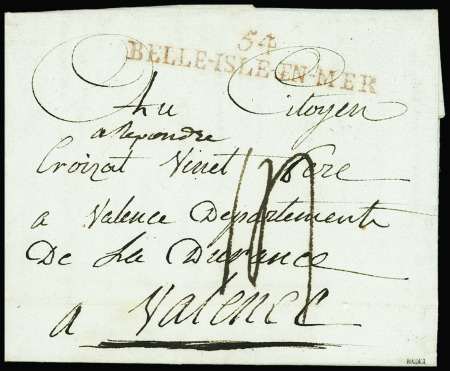 54
BELLE-ISLE-EN-MER
Au Citoyen
a Repondre
Croizat Vinet Pere
a Valence Departemente
De La Durance
a Valence